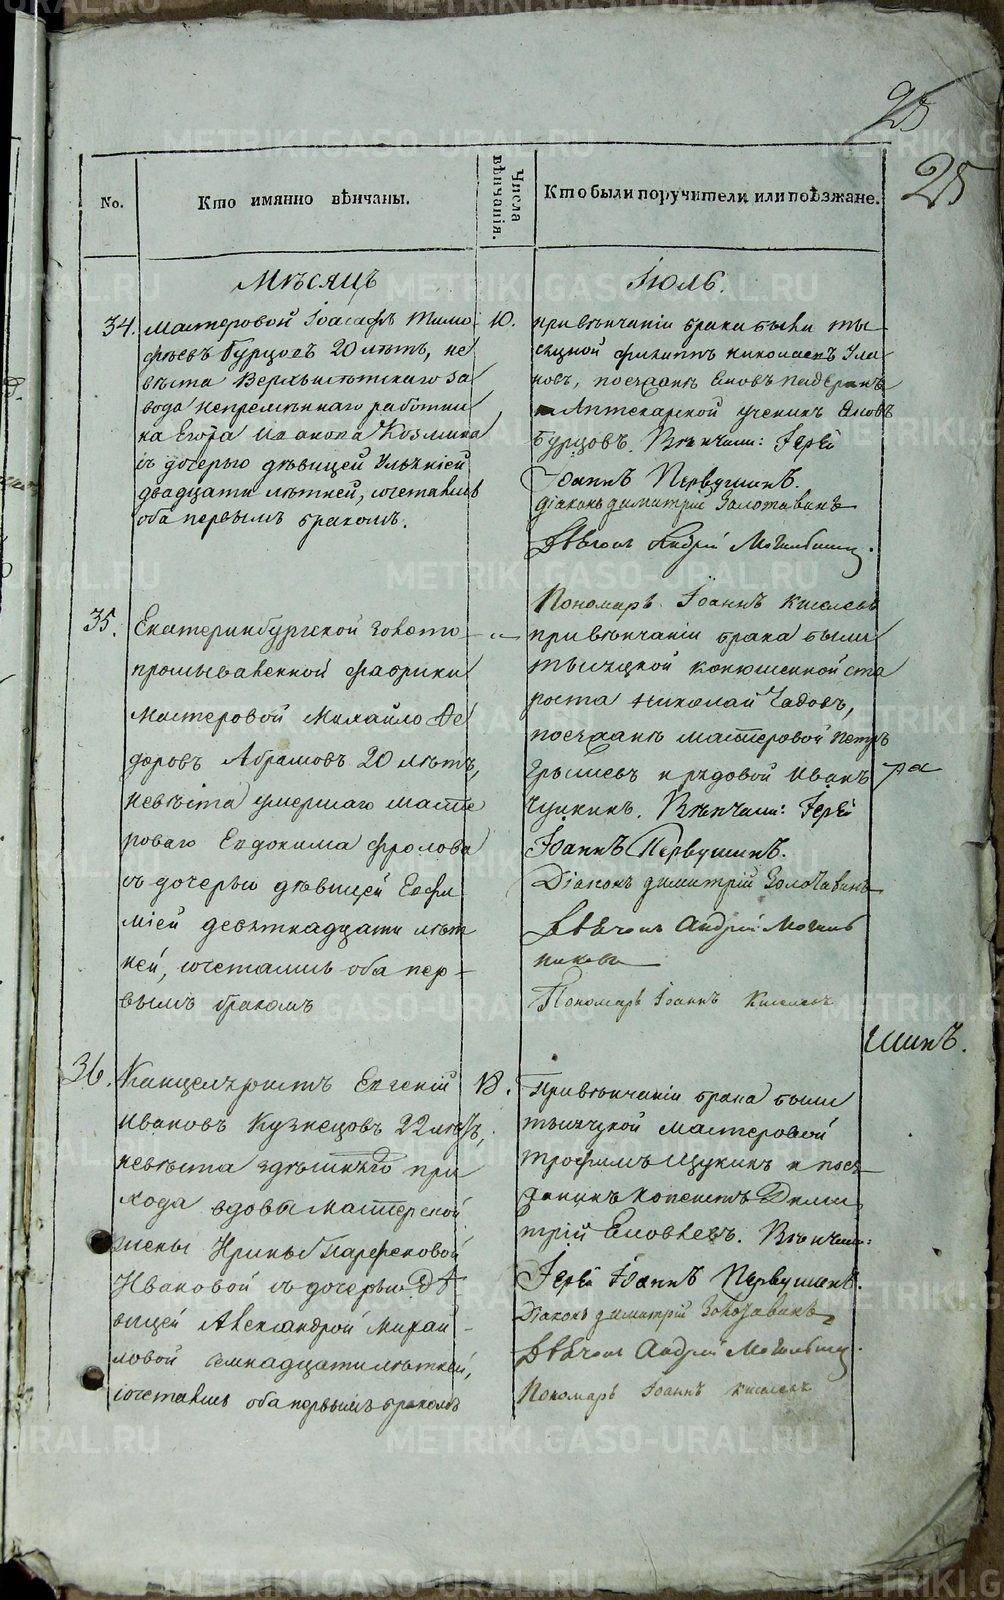 25
25
No.
Кто имянно вѣнчаны.
Числа вѣнчанія.
Кто были поручители или поѣзжане.
Мѣсяцъ
Іюль.
34.
Мастеровой Іоасафъ Тимо
фѣевъ Бурцовъ 20 лѣтъ, не
вѣста Верхъисетскаго за
вода непремѣннаго работни
ка Егора Иванова Козмина
съ дочерью дѣвицей Ульяніей
двадцати лѣтней, сочетались
оба первымъ бракомъ.
10.
при вѣнчаніи брака были ты
сяцкой Филиппъ Николаевъ
новъ, поезжане
Аптекарской ученикъ
Бурцовъ. Вѣнчали: Іерей
Іоаннъ Первушинъ.
Діаконъ Димитрій Золотавинъ
Дьячокъ Андрей
Пономарь Іоаннъ Киселевъ
35.
Екатеринбургской золото
промывленной фабрики
мастеровой Михайло Фе
доровъ Абрамовъ 20 лѣтъ,
невѣста умершаго масте
роваго Евдокима Фролова
съ дочерью дѣвицей Евфи
міей девятнадцати лѣт
ней, сочетались оба пер-
вымъ бракомъ
-"-
при вѣнчаніи брака были
тысяцкой конюшенной ста
роста Николай Чадовъ,
поезжане мастеровой Петръ
и рядовой Иванъ
Вѣнчали: Іерей
Іоаннъ Первушинъ.
Діаконъ Димитрій Золотавинъ
Дьячокъ Андрей Могиль
никовъ
Пономарь Іоаннъ Киселевъ
ра
шинъ.
36.
Канцеляристъ Евгеній
Ивановъ Кузнецовъ 22 лѣтъ,
невѣста здѣшняго при
хода вдовы мастерской
жены Ирины Парфеновой
Ивановой съ дочерью дѣ
вицей Александрой Михай-
ловой семнадцатилѣтней,
сочетались оба первымъ бракомъ
18.
При вѣнчаніи брака были
тысяцкой мастеровой
Трофимъ Щукинъ и поез-
жанинъ копеистъ Дими
трій Вѣнчали:
Іерей Іоаннъ Первушинъ.
Діаконъ Димитрій Золотавинъ
Дьячокъ Андрей
Пономарь Іоаннъ Киселевъ
METRIKI.GASO-URAL.RU